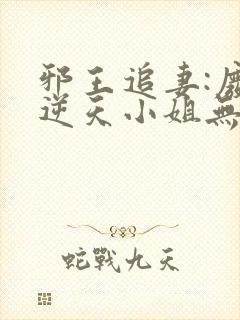 邪王追妻:
逆天小姐無
蛇戰九天